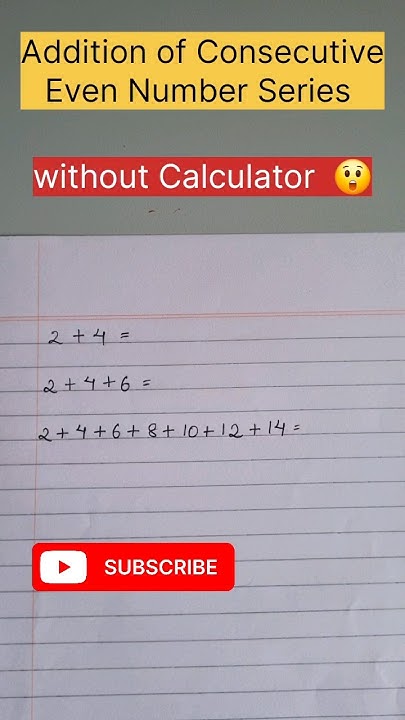 Addition of Consecutive
Even Number Series
without Calculator 😲
2 + 4 =
2 + 4 + 6 =
2 + 4 + 6 + 8 + 10 + 12 + 14 =
SUBSCRIBE